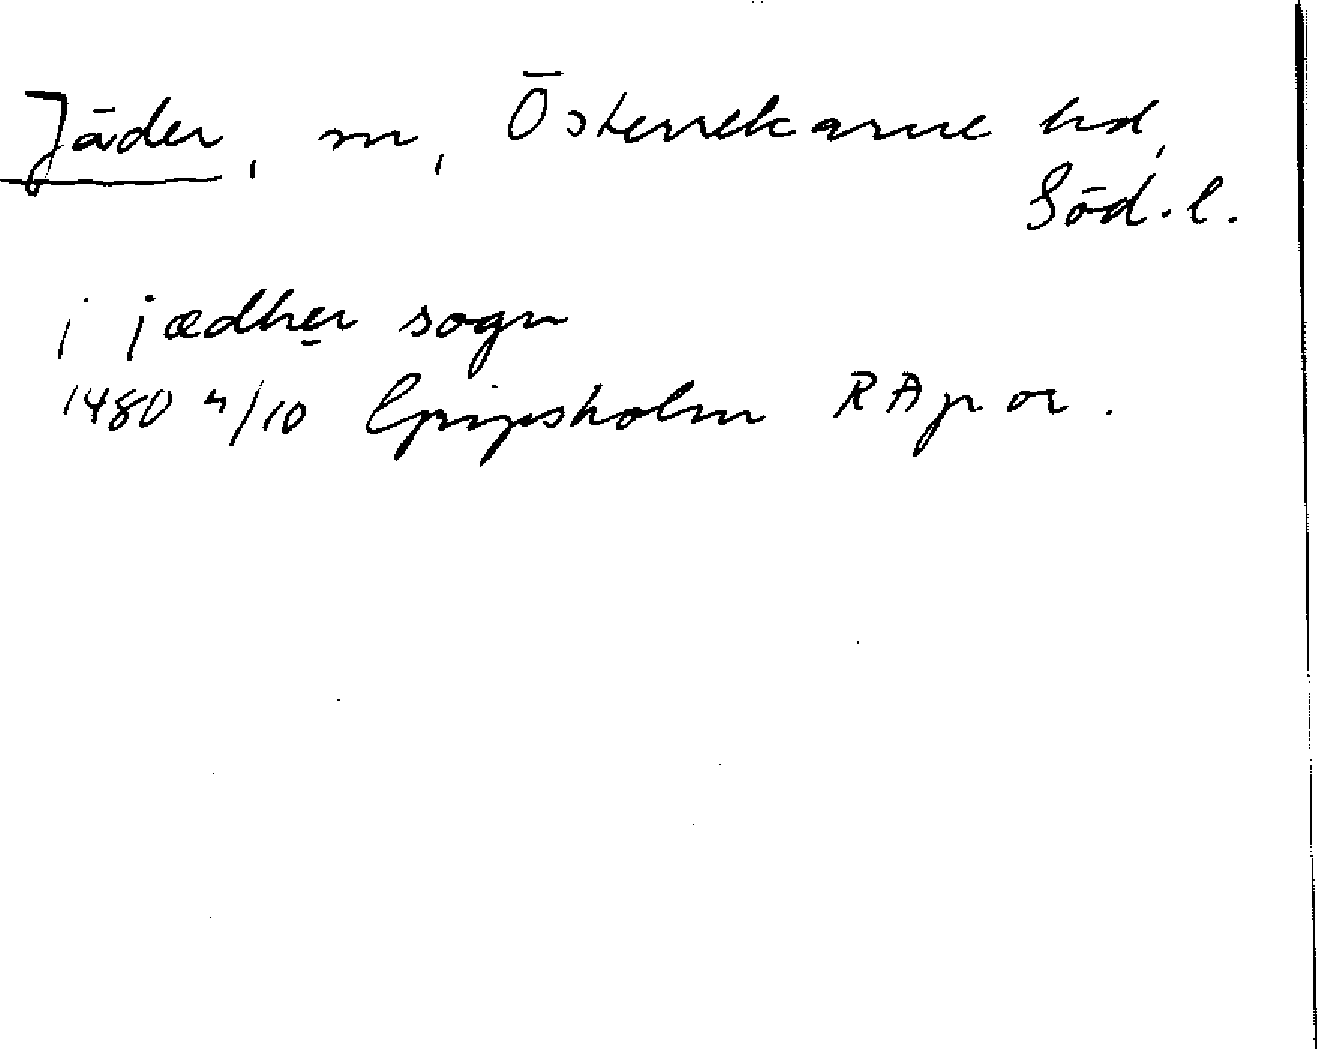 Jäder, sn, Österrekarne hd,
Söd. l.
i jædher sogn
1480 4/10 Gripsholm RAp or.